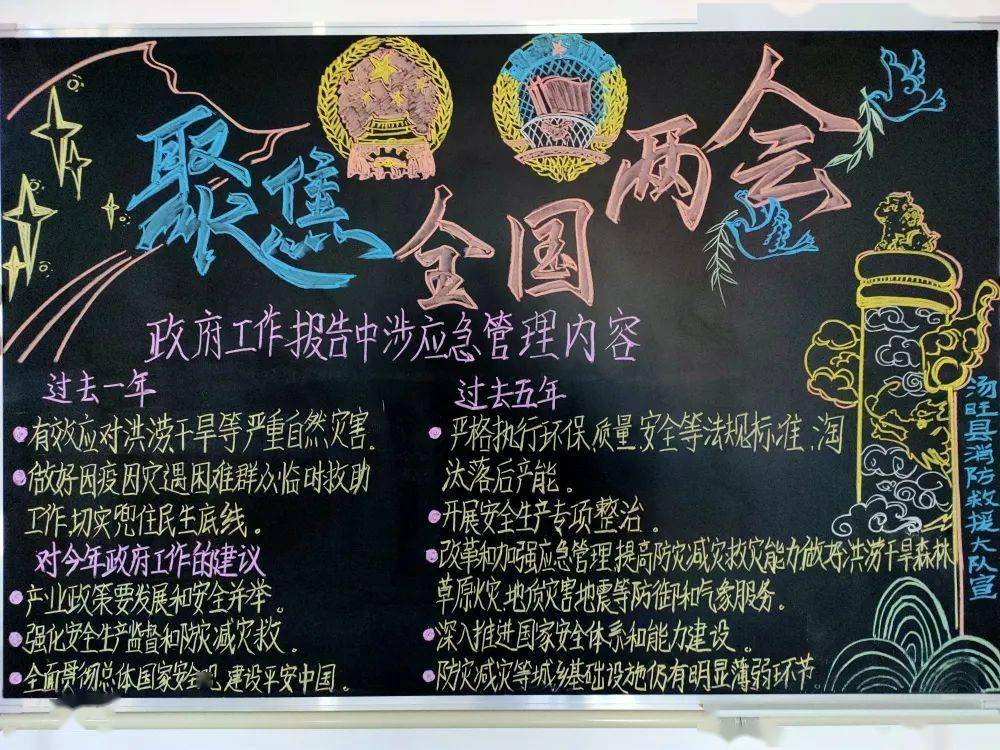 聚焦全国两会
政府工作报告中涉应急管理内容
过去一年
有效应对洪涝、干旱等严重自然灾害.
做好因疫因灾遇困难群众临时救助
工作,切实兜住民生底线。
对今年政府工作的建议
产业政策要发展和安全并举。
强化安全生产监督和防灾减灾救。
全面贯彻总体国家安全观,建设平安中国。
过去五年
严格执行环保、质量、安全等法规标准,淘
汰落后产能。
开展安全生产专项整治。
改革和加强应急管理,提高防灾减灾救灾能力,做好洪涝干旱森林
草原火灾、地质灾害地震等防御和气象服务。
深入推进国家安全体系和能力建设。
防灾减灾等城乡基础设施仍有明显薄弱环节
汤旺县消防救援大队宣